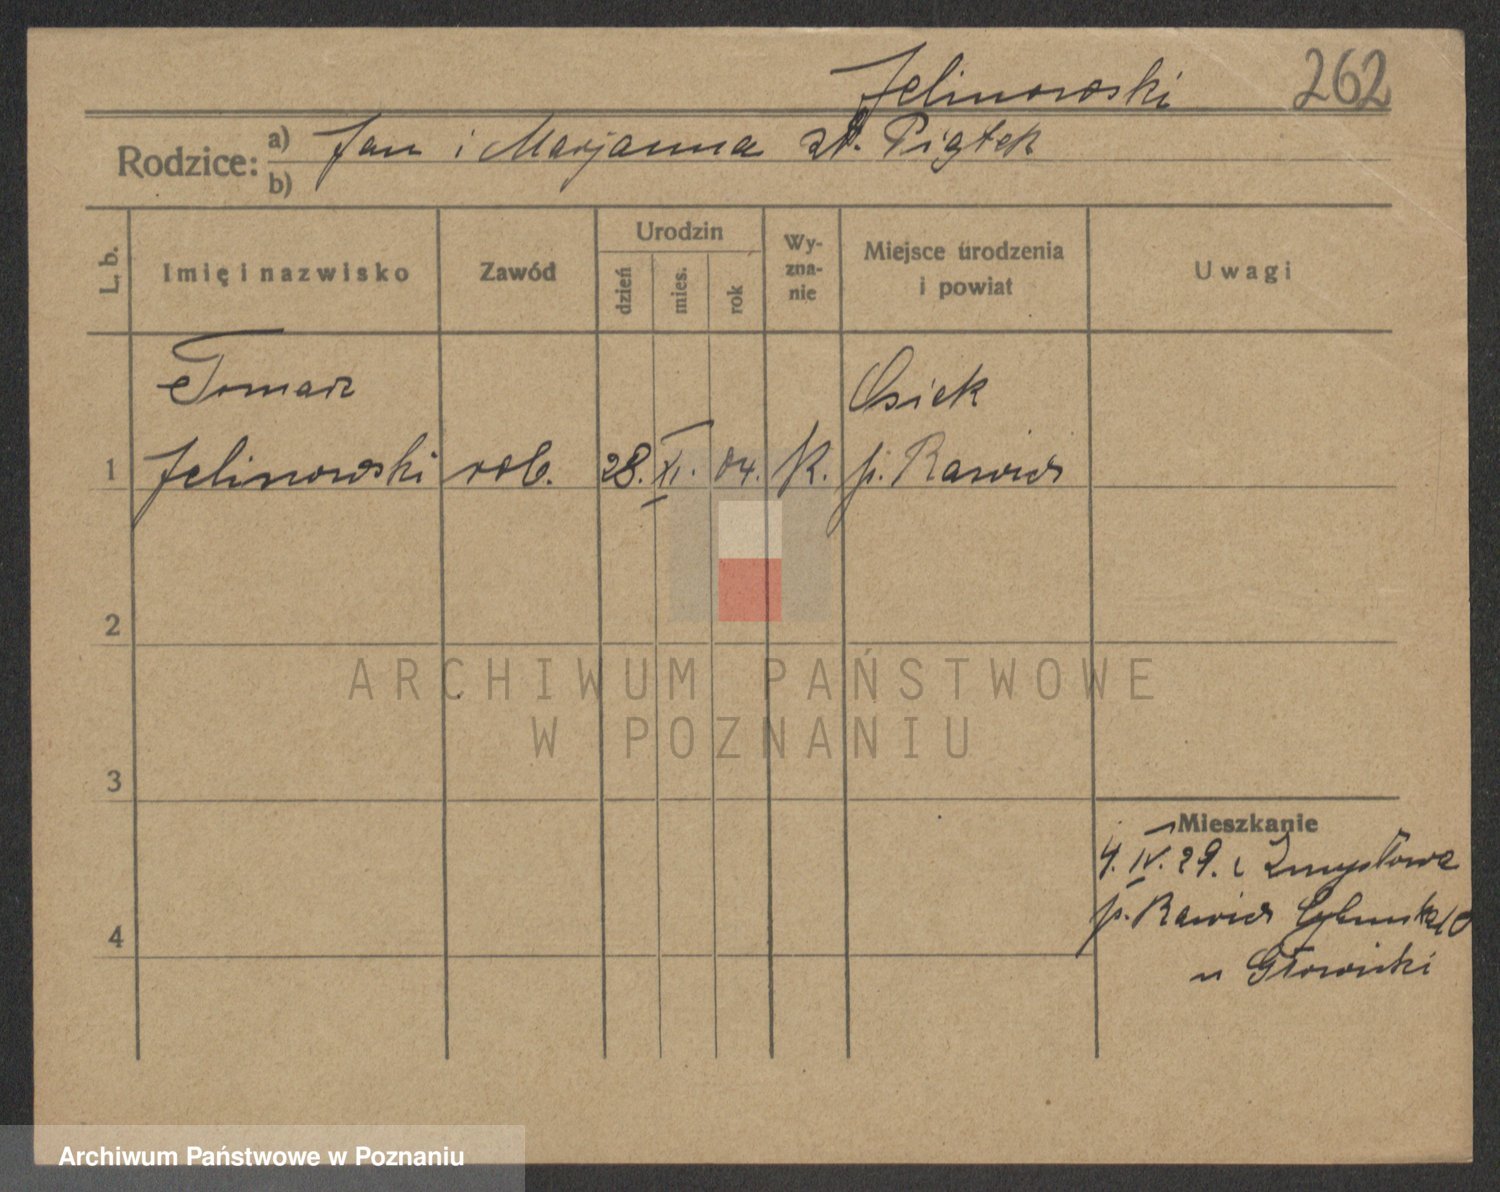 Jelinowski 262
Rodzice: a) Jan i Marjanna zd. Piątek
b)
L. b. Imię i nazwisko Zawód Urodzin dzień mies. rok Wy-zna-nie Miejsce urodzenia i powiat Uwagi
Tomasz Osiek
1 Jelinowski rob. 28. XI. 04. K. p. Rawicz
2
ARCHIWUM PAŃSTWOWE
W POZNANIU
3
Mieszkanie
4. IV. 29. z Zmysłowa
p. Rawicz
4
u Głowicki
Archiwum Państwowe w Poznaniu